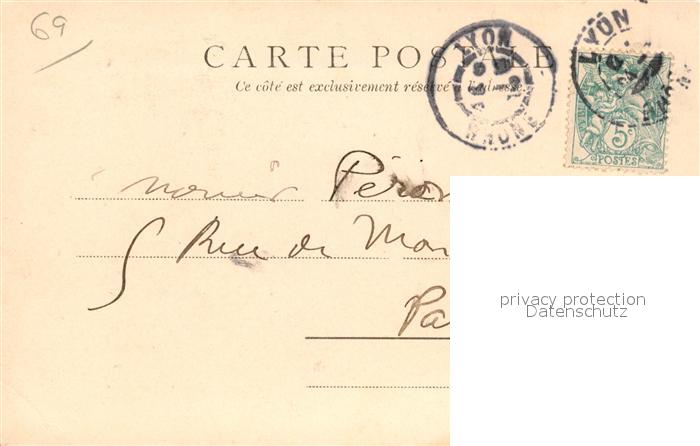 69
CARTE POSTALE
Ce côté est exclusivement réservé à l'adresse.
LYON
RHONE
LYON
RHONE
5c
POSTES
Monsieur Péron
5 Rue de Mon
Pa
privacy protection
Datenschutz